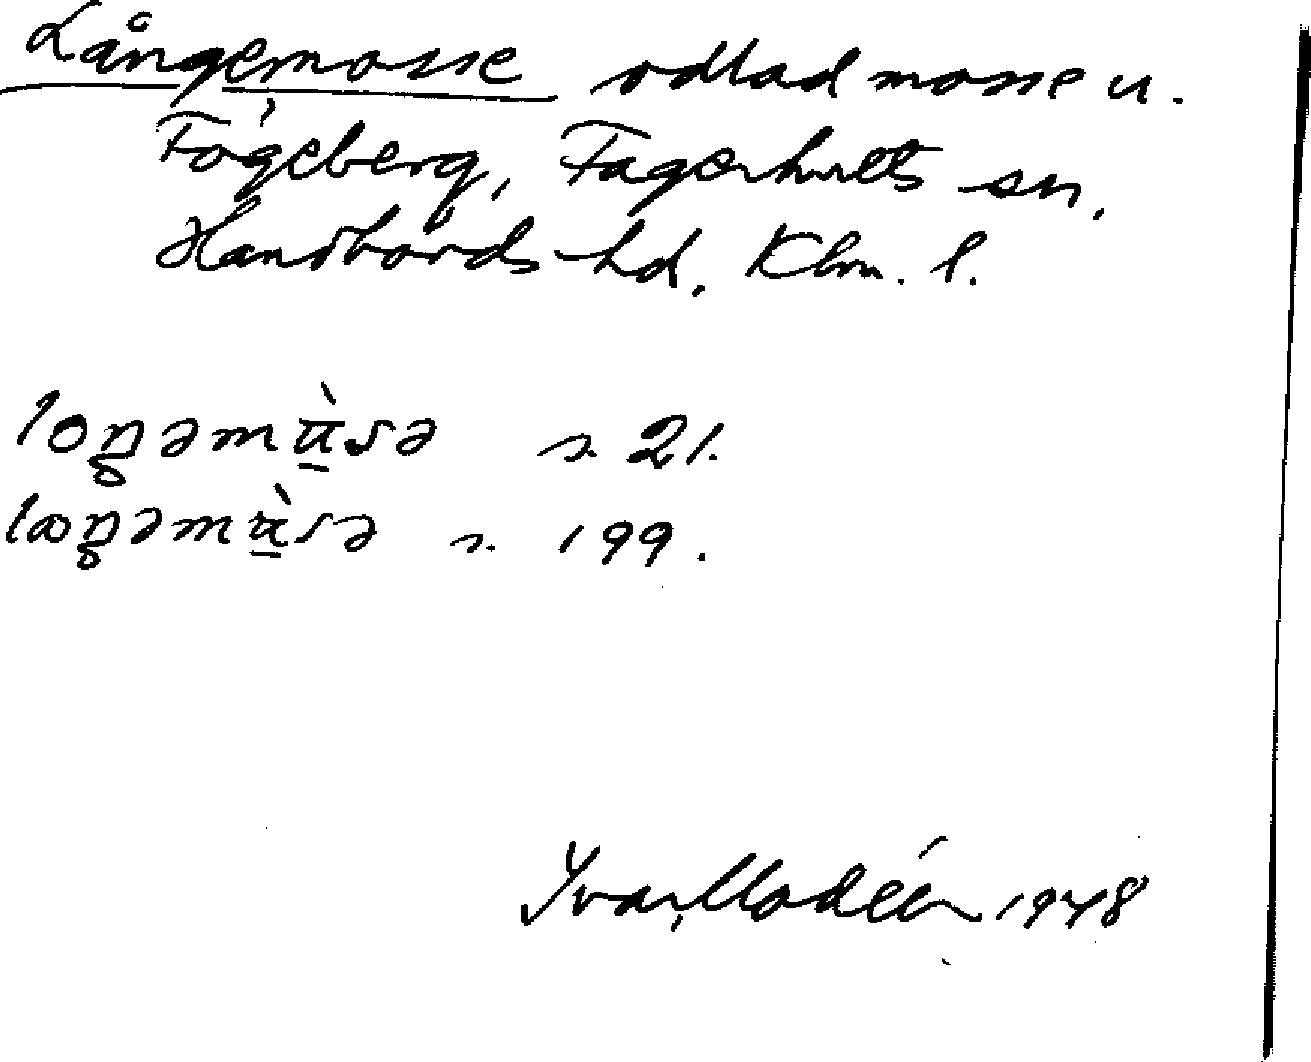 Långemosse odlad mosse u.
Fogeberg, Fagerhults sn.
Handbords hd. Klm. l.
loŋəmù̠sə s. 21.
laŋəmù̠sə s. 199.
Ivar Modéer 1948